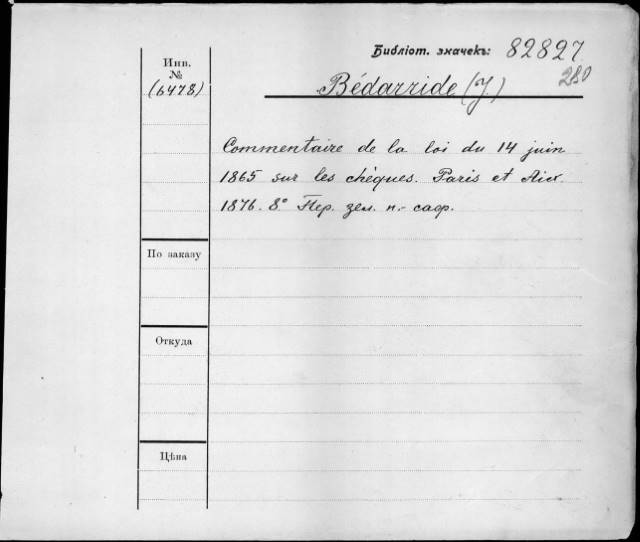 Библіот. значекъ: 82827
280
Инв.
№
(6478)
Bédarride (J.)
Commentaire de la loi du 14 juin
1865 sur les chèques. Paris et Aix.
1876. 8° Пер. зел. п.-саф.
По заказу
Откуда
Цѣна